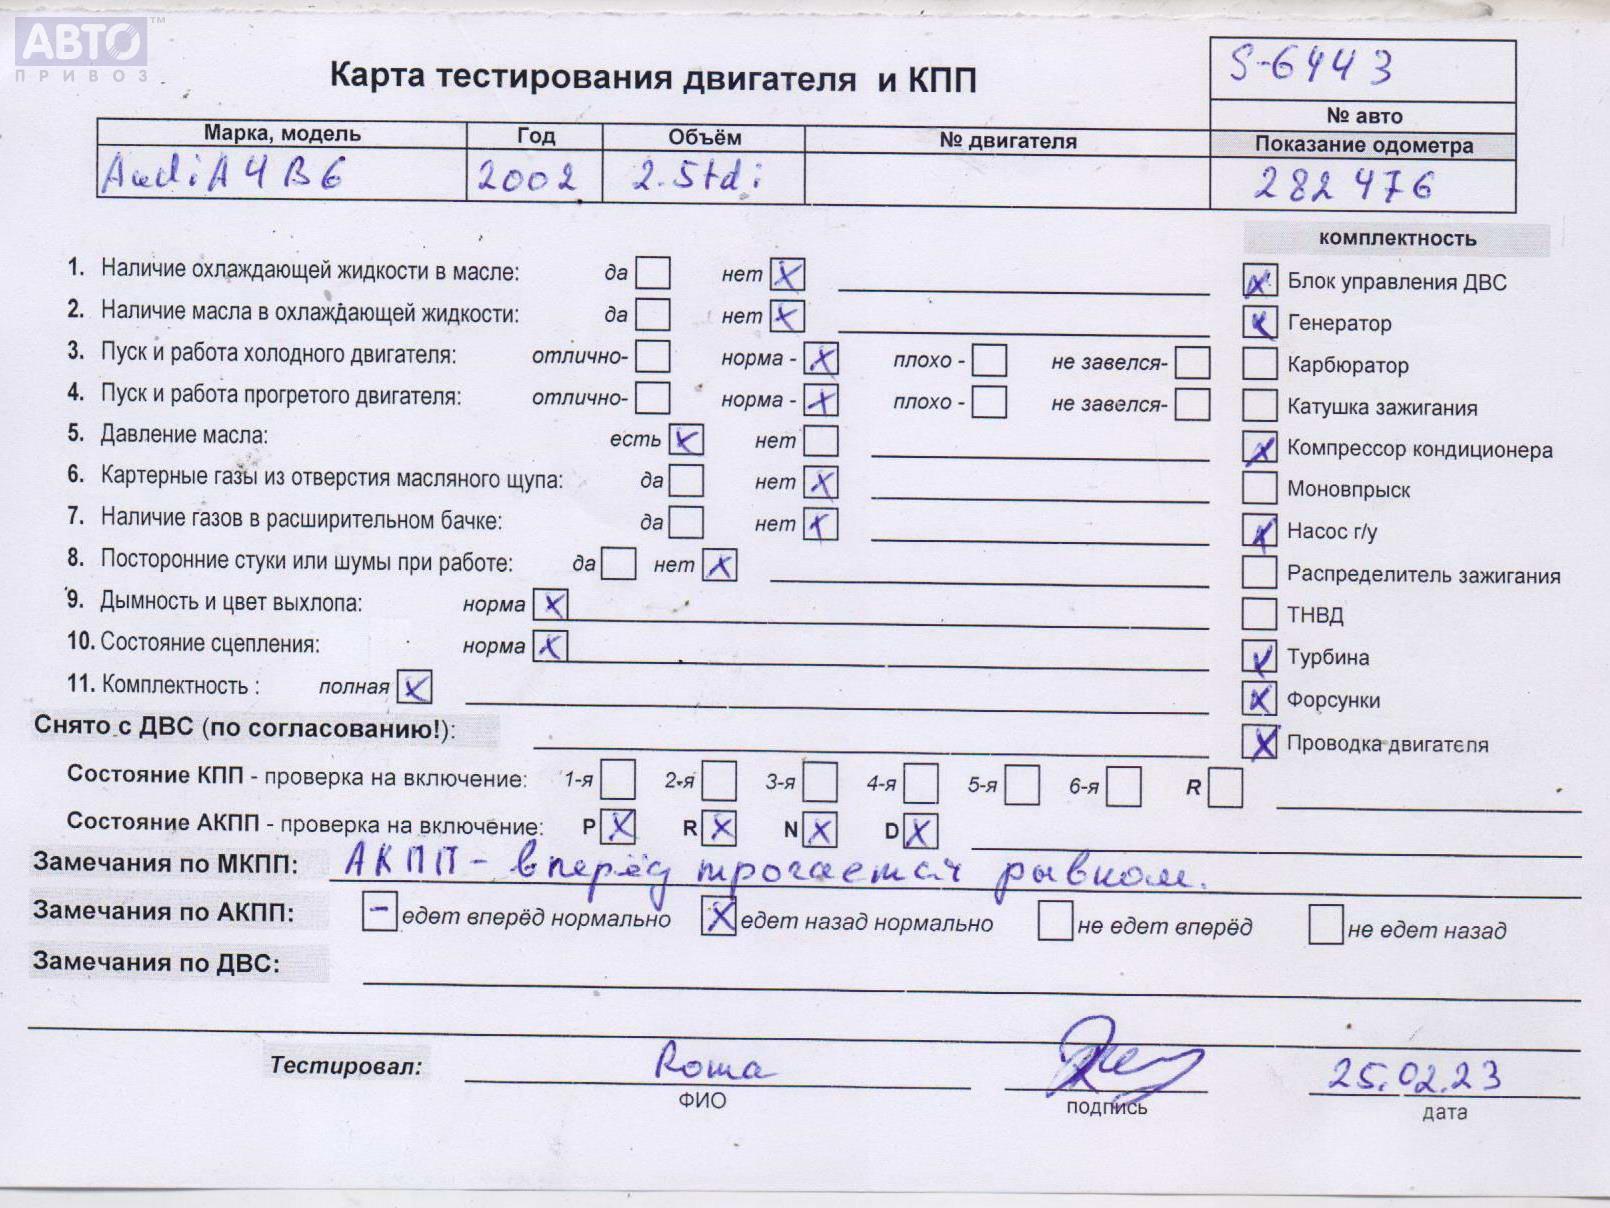 АВТО™
ПРИВОЗ
Карта тестирования двигателя и КПП
S-6443
№ авто
Марка, модель Год Объём № двигателя Показание одометра
Audi A4 B6 2002 2.5tdi 282 476
комплектность
1. Наличие охлаждающей жидкости в масле: да нет X
2. Наличие масла в охлаждающей жидкости: да нет X
3. Пуск и работа холодного двигателя: отлично- норма - X плохо - не завелся-
4. Пуск и работа прогретого двигателя: отлично- норма - X плохо - не завелся-
5. Давление масла: есть X нет
6. Картерные газы из отверстия масляного щупа: да нет X
7. Наличие газов в расширительном бачке: да нет X
8. Посторонние стуки или шумы при работе: да нет X
9. Дымность и цвет выхлопа: норма X
10. Состояние сцепления: норма X
11. Комплектность : полная X
X Блок управления ДВС
X Генератор
Карбюратор
Катушка зажигания
X Компрессор кондиционера
Моновпрыск
X Насос г/у
Распределитель зажигания
ТНВД
X Турбина
X Форсунки
X Проводка двигателя
Снято с ДВС (по согласованию!):
Состояние КПП - проверка на включение: 1-я 2-я 3-я 4-я 5-я 6-я R
Состояние АКПП - проверка на включение: P X R X N X D X
Замечания по МКПП: АКПП - вперёд трогается рывком.
Замечания по АКПП: - едет вперёд нормально X едет назад нормально не едет вперёд не едет назад
Замечания по ДВС:
Тестировал: Roma 25.02.23
ФИО подпись дата